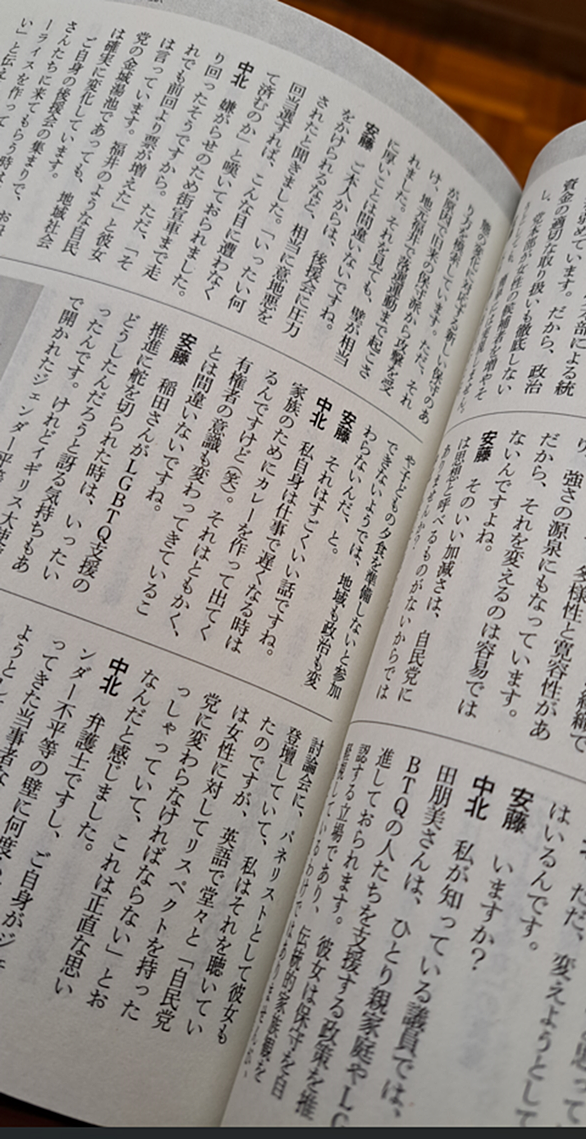 本部による統
めています。だから、政治
資金の適切な取り扱いも徹底しない
し、党本部が女性の候補者を増やそ
多様性と寛容性があ
強さの源泉にもなっています。
だから、それを変えるのは容易では
ないんですよね。
安藤　そのいい加減さは、自民党に
は思想と呼べるものがないからでは
ありませんか?
ただ、変えようとして
はいるんです。
安藤　いますか?
中北　私が知っている議員では、
田朋美さんは、ひとり親家庭やLG
BTQの人たちを支援する政策を推
進しておられます。彼女は保守を自
認する立場であり、伝統的家族観を
しい保守のあ
り方を模索しています。ただ、それ
が原因で旧来の保守派から攻撃を受
け、地元福井で落選運動まで起こさ
れました。それを見ても、壁が相当
に厚いことは間違いないですね。
安藤　ご本人からは、後援会に圧力
をかけられるなど、相当に意地悪を
されたと聞きました。「いったい何
回当選すれば、こんな目に遭わなく
て済むのか」と嘆いておられました。
中北　嫌がらせのため街宣車まで走
り回ったそうですから。ただ、「そ
れでも前回より票が増えた」と彼女
は言っています。福井のような自民
党の金城湯池であっても、地域社会
は確実に変化しています。
ご自身の後援会の集まりで、お母
さんたちに来てもらう時は、
ーライスを作って
い」と伝え
や子どもの夕食を準備しないと参加
できないようでは、地域も政治も変
わらないんだ、と。
安藤　それはすごくいい話ですね。
中北　私自身は仕事で遅くなる時は
家族のためにカレーを作って出てく
るんですけど(笑)。それはともかく、
有権者の意識も変わってきているこ
とは間違いないですね。
安藤　稲田さんがLGBTQ支援の
推進に舵を切られた時は、いったい
どうしたんだろうと訝る気持ちもあ
ったんです。けれどイギリス大使
で開かれたジェンダー平等
討論会に、パネリストとして彼女も
登壇していて、私はそれを聴いてい
たのですが、英語で堂々と「自民党
は女性に対してリスペクトを持った
党に変わらなければならない」とお
っしゃっていて、これは正直な思い
なんだと感じました。
中北　弁護士ですし、ご自身がジェ
ンダー不平等の壁に何度も
ってきた当事者な
ようとし